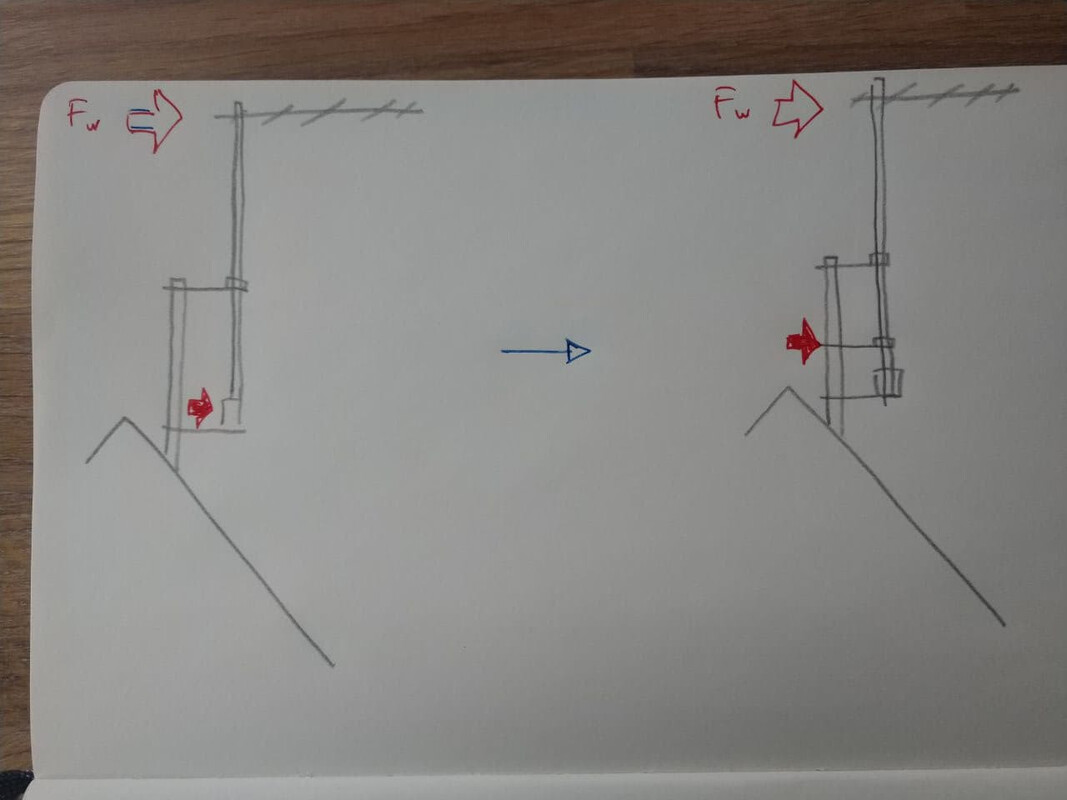 Fw
Fw